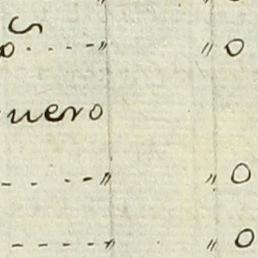 os....-〃 〃 0
uero
-- . --〃 〃 0
-----〃 〃 0